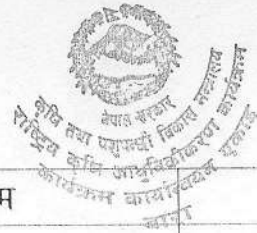 नेपाल सरकार
कृषि तथा पशुपन्छी विकास मन्त्रालय
राष्ट्रिय कृषि आधुनिकीकरण कार्यक्रम
कार्यक्रम कार्यान्वयन एकाई
म